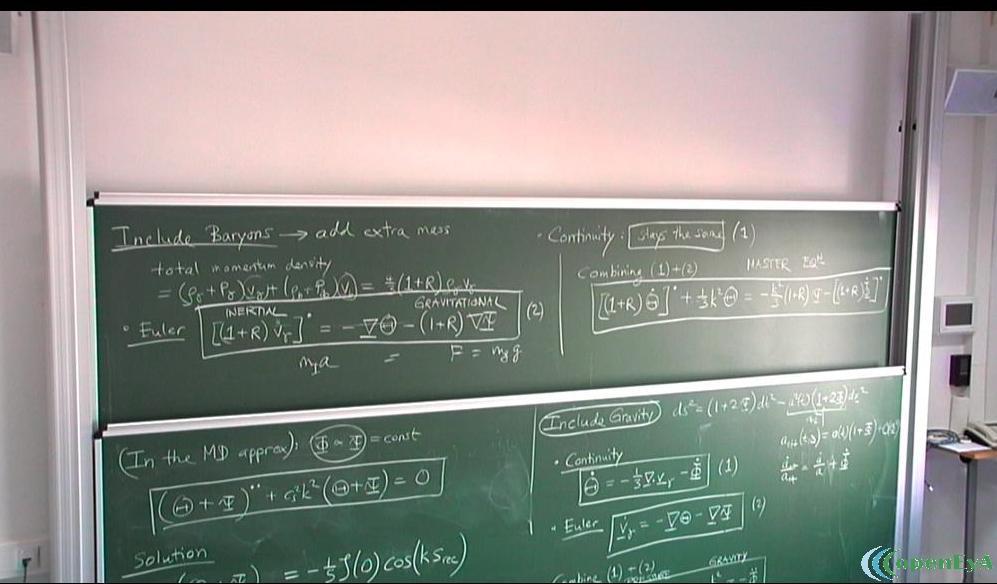 Include Baryons → add extra mass
total momentum density
= (ρ_γ + P_γ) v_γ + (ρ_b + P_b) v_b = 4/3 (1+R) ρ_γ v_γ
INERTIAL GRAVITATIONAL
• Euler [(1+R) v_γ]˙ = -∇Θ - (1+R) ∇Ψ (2)
m_I a = F = m_g g
• Continuity: stays the same (1)
Combining (1)+(2) MASTER EQN
[(1+R) Θ̇]˙ + 1/3 k² Θ = -k²/3 (1+R) Ψ - [(1+R) Φ̇]˙
(In the MD approx): Φ ∝ Ψ = const
(Θ + Ψ)¨ + c_s² k² (Θ + Ψ) = 0
Solution
= -1/5 ζ(0) cos(k s_rec)
Include Gravity ds² = (1+2Ψ) dt² - a²(t)(1+2Φ) dx²
• Continuity
Θ̇ = -1/3 ∇·v_γ - Φ̇ (1)
• Euler v̇_γ = -∇Θ - ∇Ψ (2)
Combine (1) + (2) GRAVITY
openEyA